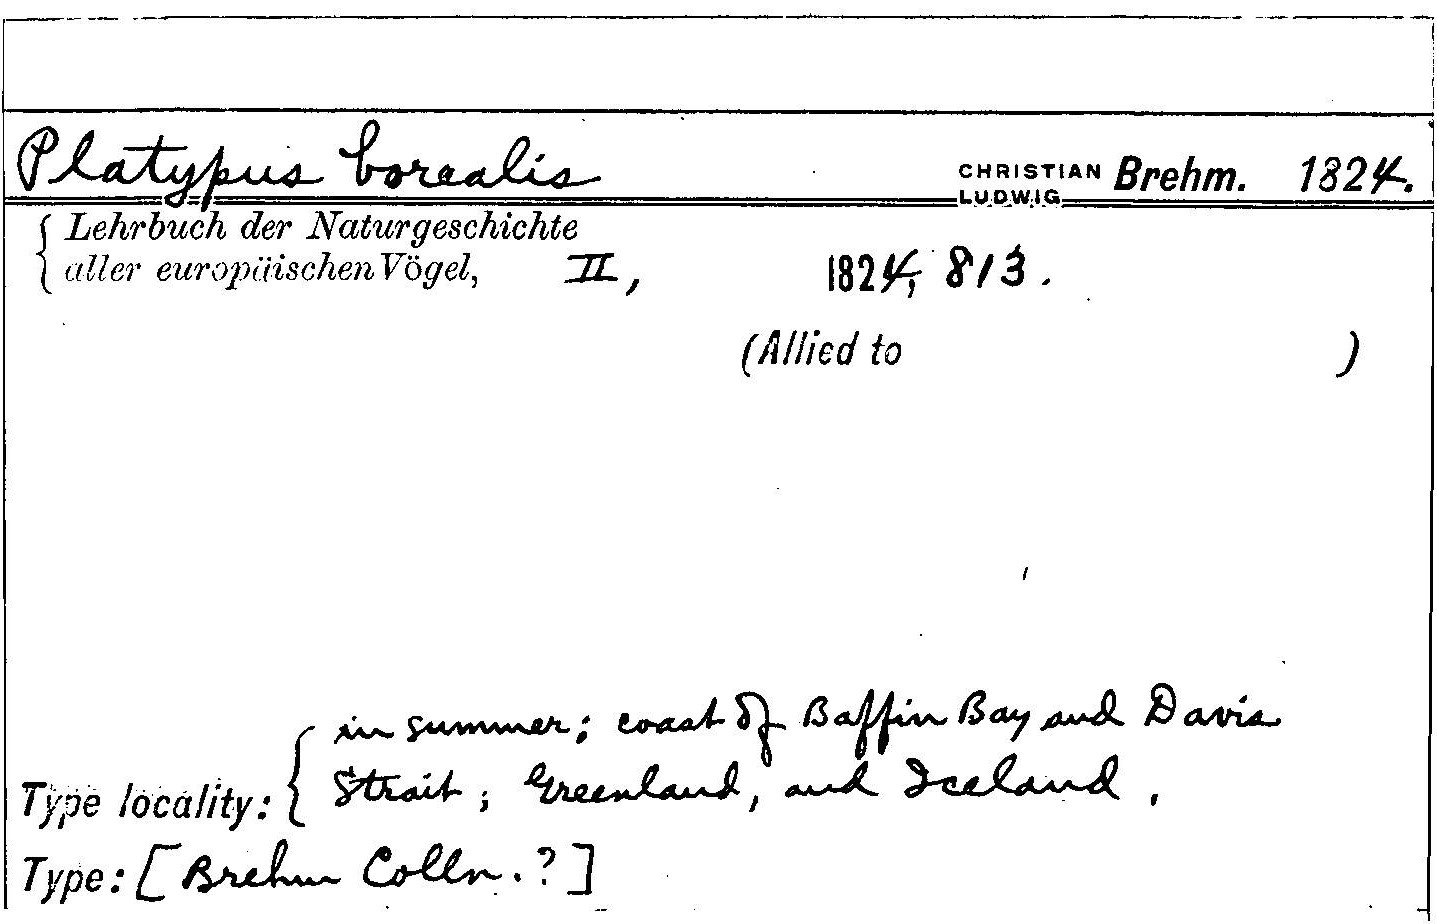 Platypus borealis CHRISTIAN LUDWIG Brehm. 1824.
Lehrbuch der Naturgeschichte
aller europäischen Vögel, II, 1824, 813.
(Allied to )
in summer; coast of Baffin Bay and Davis
Type locality: Strait; Greenland, and Iceland.
Type: [Brehm Colln.?]